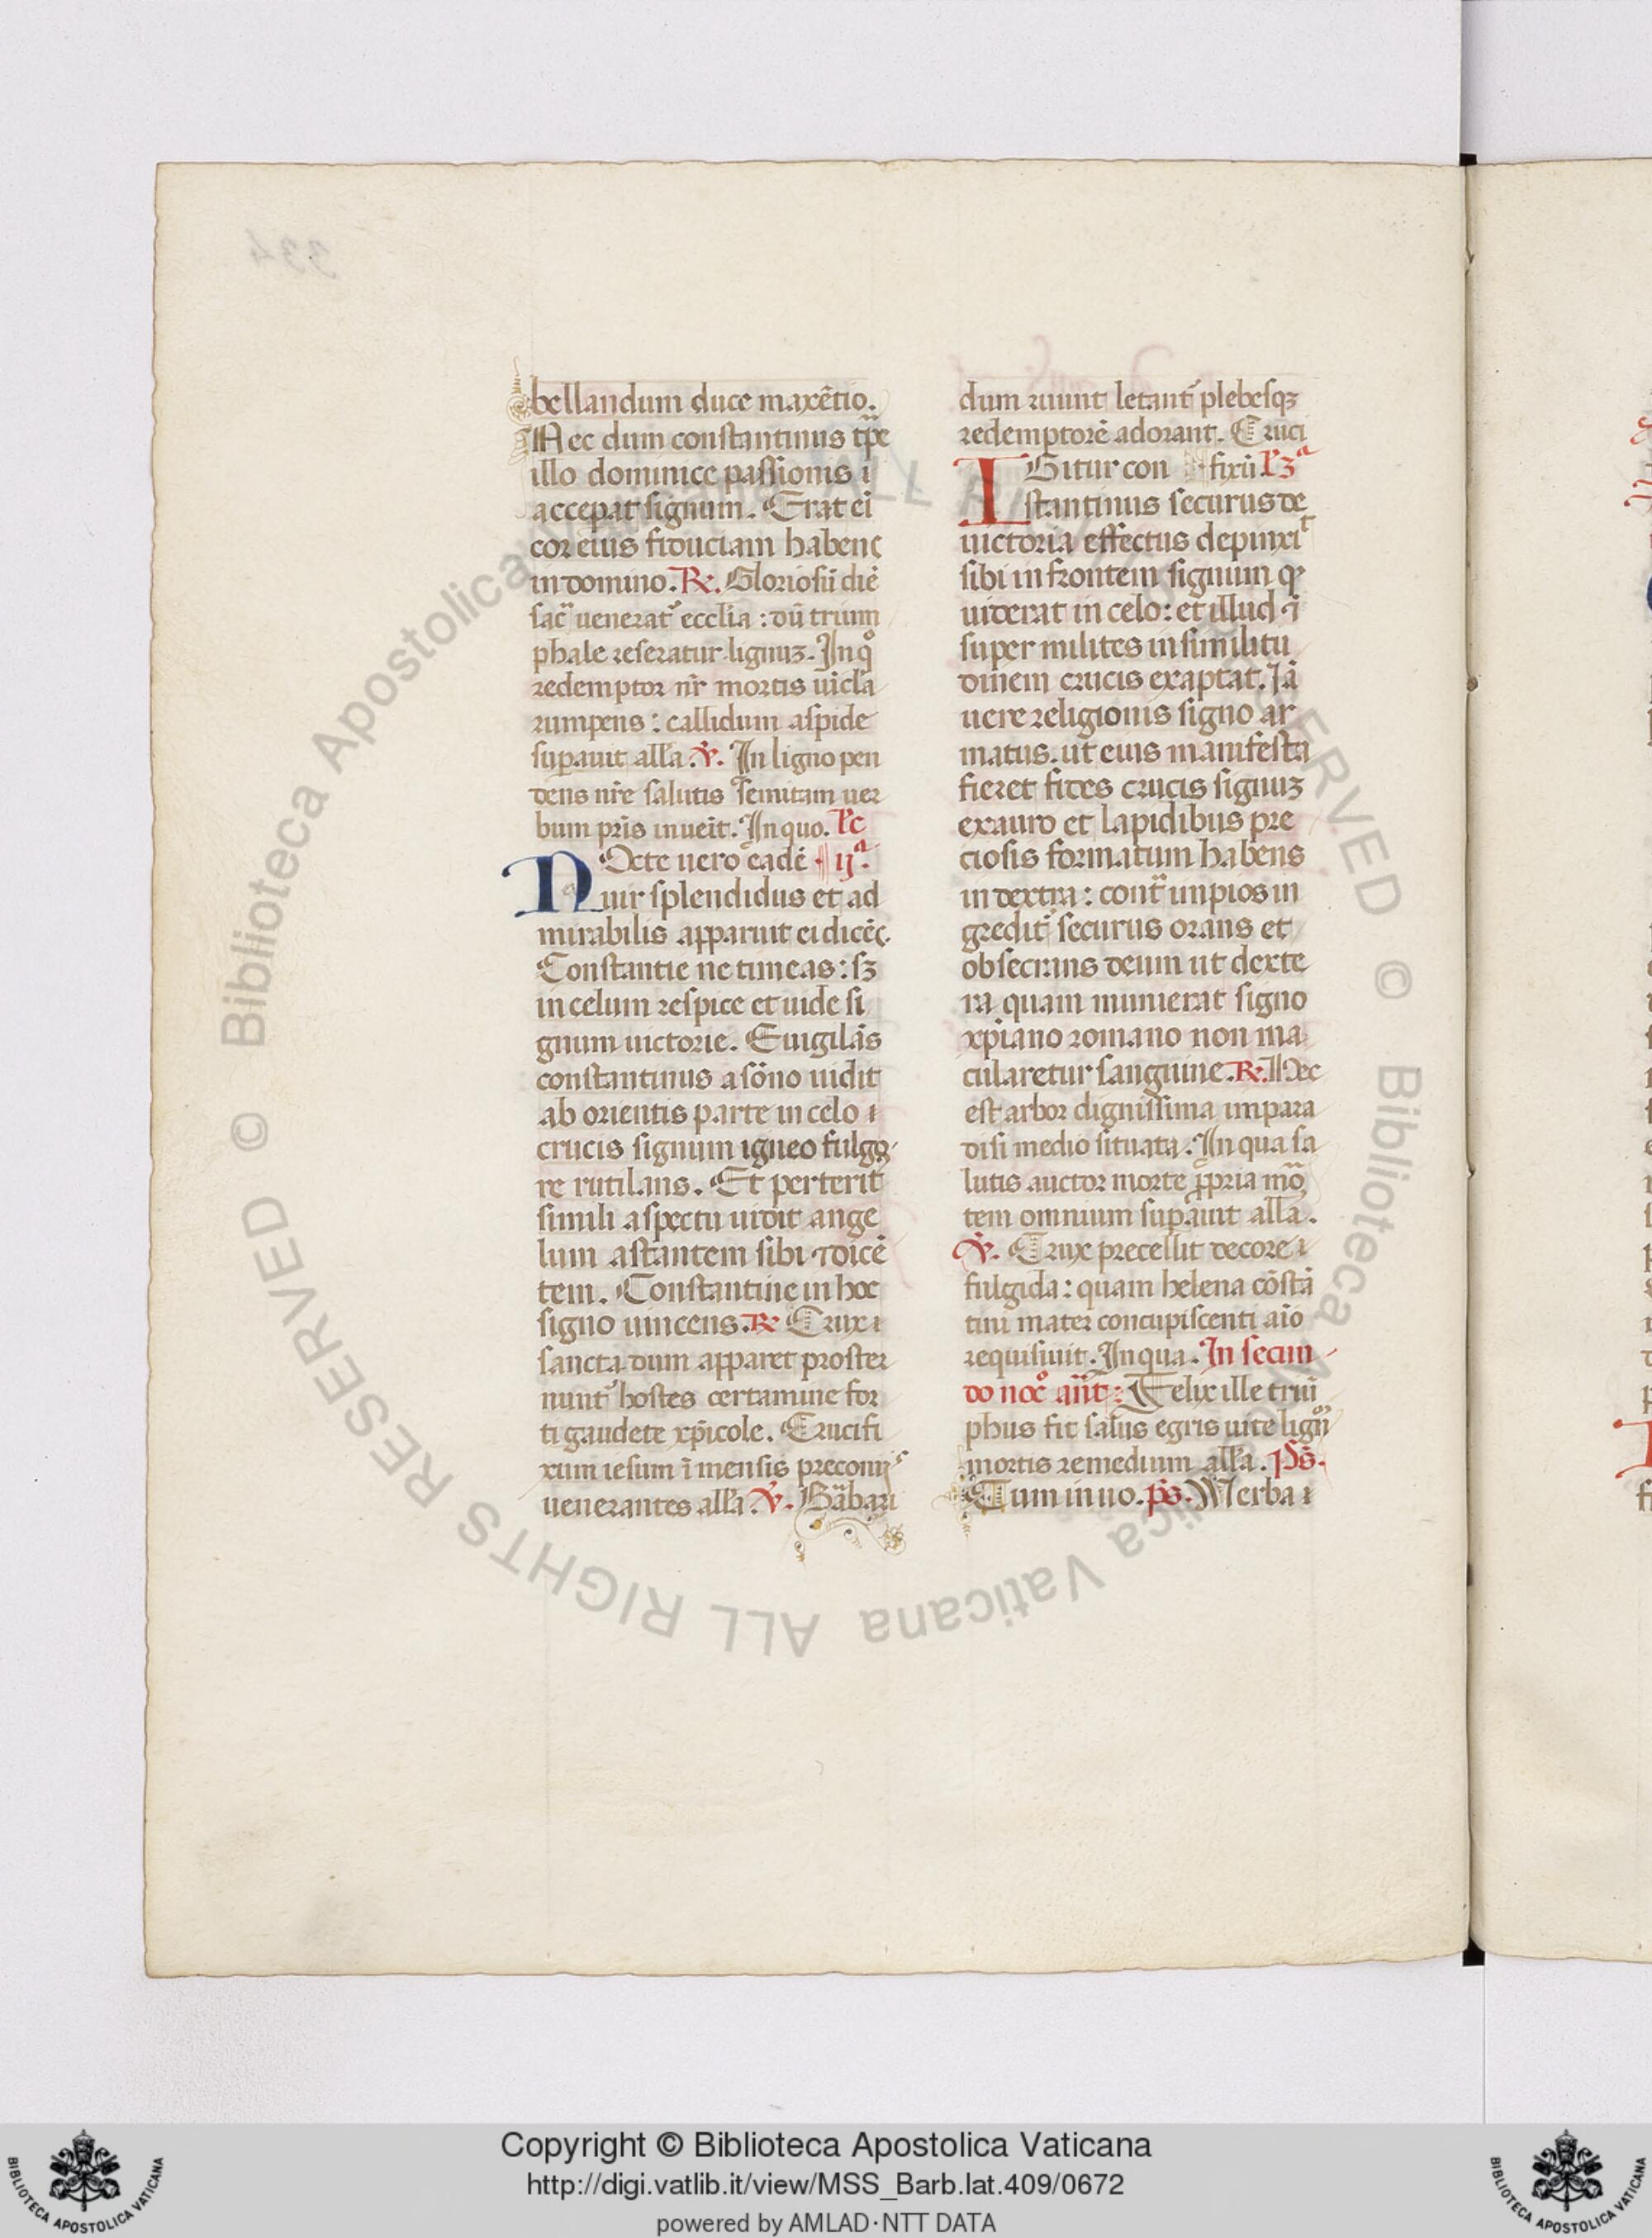 bellandum duce maxētio.
Nec dum constantinus tp̄e
illo dominice passionis i
accepat signum. Erat ei
cor eius fiduciam habenс
in domino. R. Gloriosū diē
sac̄ uenerat᷑ ecclīa : dū trium
phale reseratur lignuꝫ. In qͦ
redemptor nr̄ mortis uīcla
rumpens : callidum aspide
supauit alla. V. In ligno pen
dens nr̄e salutis semitam uer
bum pr̄is inueīt. In quo. lc̄
Nocte uero eadē ijª.
uir splendidus et ad
mirabilis apparuit ei dicēс.
Constantīe ne timeas : sꝫ
in celum respice et uide si
gnum uictorie. Euigilās
constantinus a sōno uidit
ab orientis parte in celo i
crucis signum igneo fulgo
re rutilans. Et perterit᷑
simili aspectu uidit ange
lum astantem sibi ⁊ dicē
tem. Constantine in hoc
signo uincens. R Crux i
sancta dum apparet proster
nunt᷑ hostes certamine for
ti gaudete xp̄icole. Crucifi
xum iesum īmensis preconijˢ
uenerantes alla. V. Bābari
dum ruunt letant᷑ plebesqꝫ
redemptorē adorant. Cruci
Igitur con fixū. l 3ª
stantinus securus de
uictoria effectus depinxiᵗ
sibi in frontem signum qͩ
uiderat in celo : et illud ⁊ i
super milites in similitu
dinem crucis exaptat. Iā
uere religionis signo ar
matus. ut eius manifesta
fieret fides crucis signuꝫ
ex auro et lapidibus pre
ciosis formatum habens
in dextra : cont̄ impios in
gredit᷑ securus orans et
obsecrans deum ut dexte
ra quam munierat signo
xp̄iano romano non ma
cularetur sanguine. R. Hec
est arbor dignissima in para
disi medio situata. In qua sa
lutis auctor morte p̄pria mo
tem omnium supauit alla.
V. Crux precellit decore i
fulgida : quam helena cōstā
tini mater concupiscenti aīo
requisiuit. In qua. In secun
do noc̊ añt : Felix ille triū
phus fit salus egris uite lignū
mortis remedium alla. ps̄.
Cum inuo. ps̄. Verba i
Copyright © Biblioteca Apostolica Vaticana
http://digi.vatlib.it/view/MSS_Barb.lat.409/0672
powered by AMLAD·NTT DATA
BIBLIOTECA APOSTOLICA VATICANA
BIBLIOTECA APOSTOLICA VATICANA
© Biblioteca Apostolica Vaticana ALL RIGHTS RESERVED